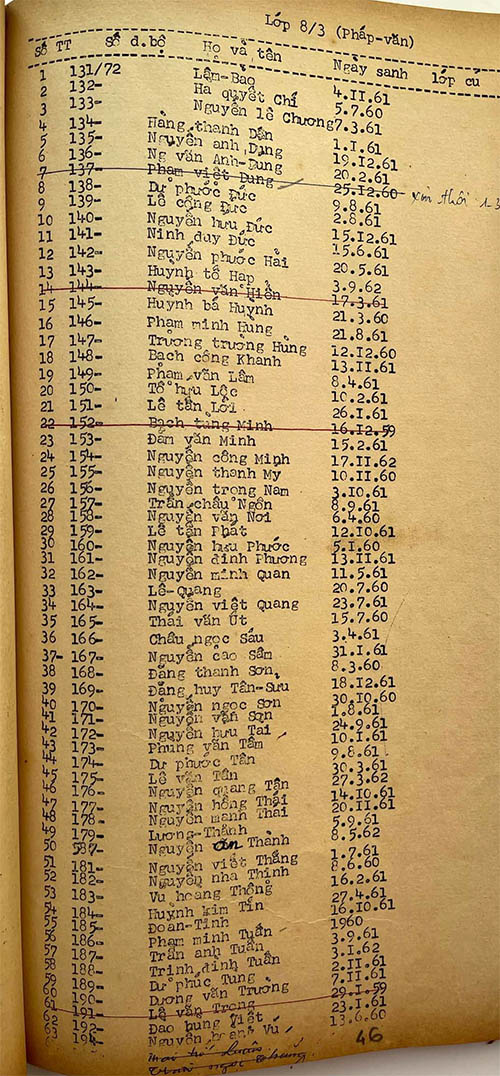 Lớp 8/3 (Pháp-văn)
Số TT Số d.bộ Họ và tên Ngày sanh lớp cũ
1 131/72 Lâm-Bảo 4.II.61
2 132- Hà quyết Chí 5.7.60
3 133- Nguyễn lê Chương 7.3.61
4 134- Hàng thanh Dân 1.1.61
5 135- Nguyễn anh Dung 19.12.61
6 136- Ng văn Anh-Dung 20.2.61
7 137- Phạm viết Dung 25.12.60 xin thôi
8 138- Dư phước Đức 9.8.61
9 139- Lê công Đức 2.8.61
10 140- Nguyễn hưu Đức 15.12.61
11 141- Ninh duy Đức 15.6.61
12 142- Nguyễn phước Hải 20.5.61
13 143- Huynh tố Hạp 3.9.62
14 144- Nguyễn văn Hiền 17.3.61
15 145- Huynh bá Huynh 21.3.60
16 146- Phạm minh Hùng 21.8.61
17 147- Trương trường Hùng 12.12.60
18 148- Bạch công Khanh 13.II.61
19 149- Phạm văn Lâm 8.4.61
20 150- Tô hưu Lộc 10.2.61
21 151- Lê tấn Lới 26.1.61
22 152- Bạch tùng Minh 16.12.59
23 153- Đàm văn Minh 15.2.61
24 154- Nguyễn công Minh 17.II.62
25 155- Nguyễn thanh My 10.II.60
26 156- Nguyễn trong Nam 3.10.61
27 157- Trần châu Ngôn 8.9.61
28 158- Nguyễn văn Nơi 6.4.60
29 159- Lê tấn Phát 12.10.61
30 160- Nguyễn hưu Phước 5.1.60
31 161- Nguyễn đình Phương 13.II.61
32 162- Nguyễn minh Quan 11.5.61
33 163- Lê-Quang 20.7.60
34 164- Nguyễn việt Quang 23.7.61
35 165- Thái văn Út 15.7.60
36 166- Châu ngọc Sáu 3.4.61
37- 167- Nguyễn cao Sâm 31.1.61
38 168- Đặng thanh Sơn 8.3.60
39 169- Đặng huy Tân-Sưu 18.12.61
40 170- Nguyễn ngọc Sơn 30.10.60
41 171- Nguyễn văn Sơn 1.8.61
42 172- Nguyễn hưu Tai 24.9.61
43 173- Phùng văn Tâm 10.1.61
44 174- Dư phước Tân 9.8.61
45 175- Lê văn Tân 30.3.61
46 176- Nguyễn quang Tân 27.3.62
47 177- Nguyễn hồng Thái 14.10.61
48 178- Nguyễn manh Thái 20.II.61
49 179- Lương-Thành 5.9.61
50 587- Nguyễn văn Thành 8.5.62
51 181- Nguyễn viết Thắng 1.7.61
52 182- Nguyễn nha Thinh 8.6.60
53 183- Vu hoang Thông 16.2.61
54 184- Huỳnh kim Tín 27.4.61
55 185- Đoan-Tinh 16.10.61
56 186- Phạm minh Tuấn 1960
57 187- Trần anh Tuấn 3.9.61
58 188- Trinh đình Tuấn 3.1.62
59 189- Dư phúc Tung 2.II.61
60 190- Dương văn Trương 7.II.61
61 191- Lê văn Trong 29.1.59
62 192- Đao hung Việt 23.1.61
63 194- Nguyễn hoanh Vũ 13.6.60
46